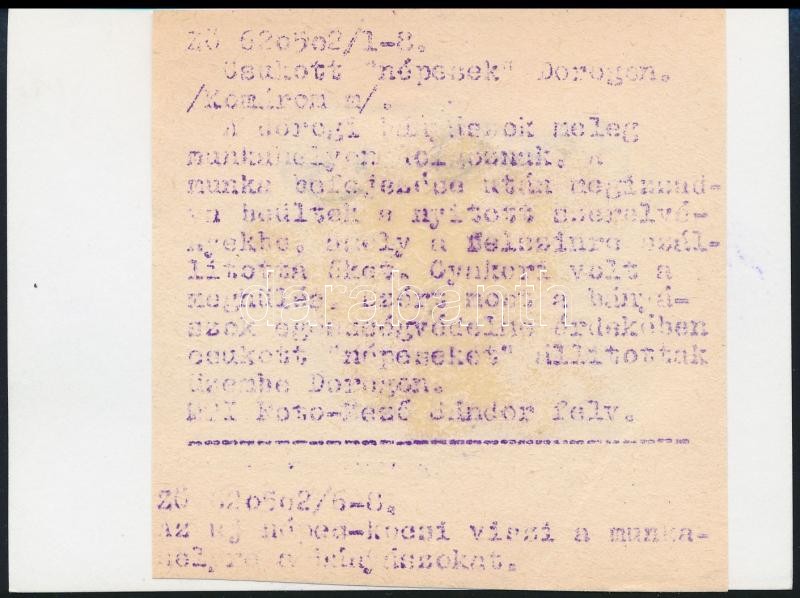 ZŐ 620502/1-8.
Csukott "népesek" Dorogon.
/Komárom m/.
A dorogi bányászok meleg
munkahelyen dolgoznak. A
munka befejezése után megizzad-
va beültek a nyitott szerelvé-
nyekbe, amely a felszinre szál-
litotta őket. Gyakori volt a
meghülés, ezért most a bányá-
szok egészségvédelme érdekében
csukott "népeseket" állitottak
üzembe Dorogon.
MTI Foto-Mező Sándor felv.
ZŐ 620502/6-8.
Az uj népes-kocsi viszi a munka-
helyre a bányászokat.
darabanth